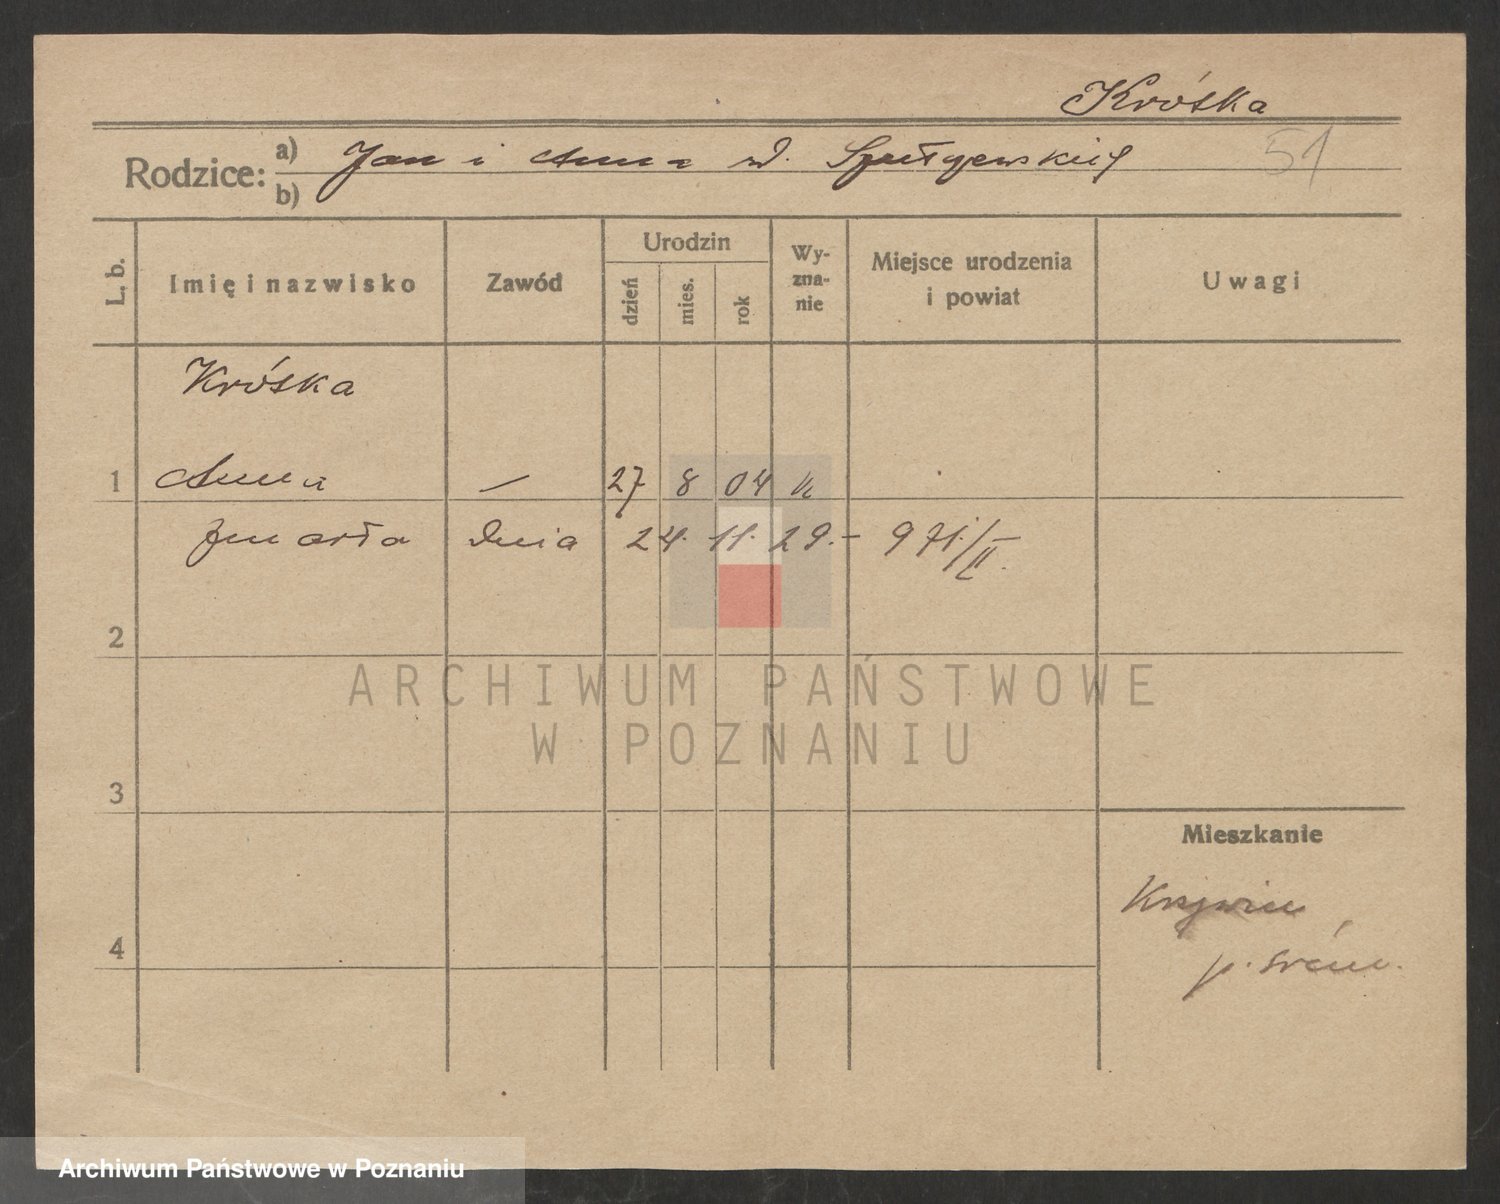 Króska
51
Rodzice: a) Jan i Anna
b)
L. b.
Imię i nazwisko
Zawód
Urodzin
dzień
mies.
rok
Wy-
zna-
nie
Miejsce urodzenia
i powiat
Uwagi
Króska
1 Anna — 27 8 04 k
zmarła dnia 24. 11. 29.— 971./II.
2
ARCHIWUM PAŃSTWOWE
W POZNANIU
3
Mieszkanie
Krzywiń
p. Śrem.
4
Archiwum Państwowe w Poznaniu